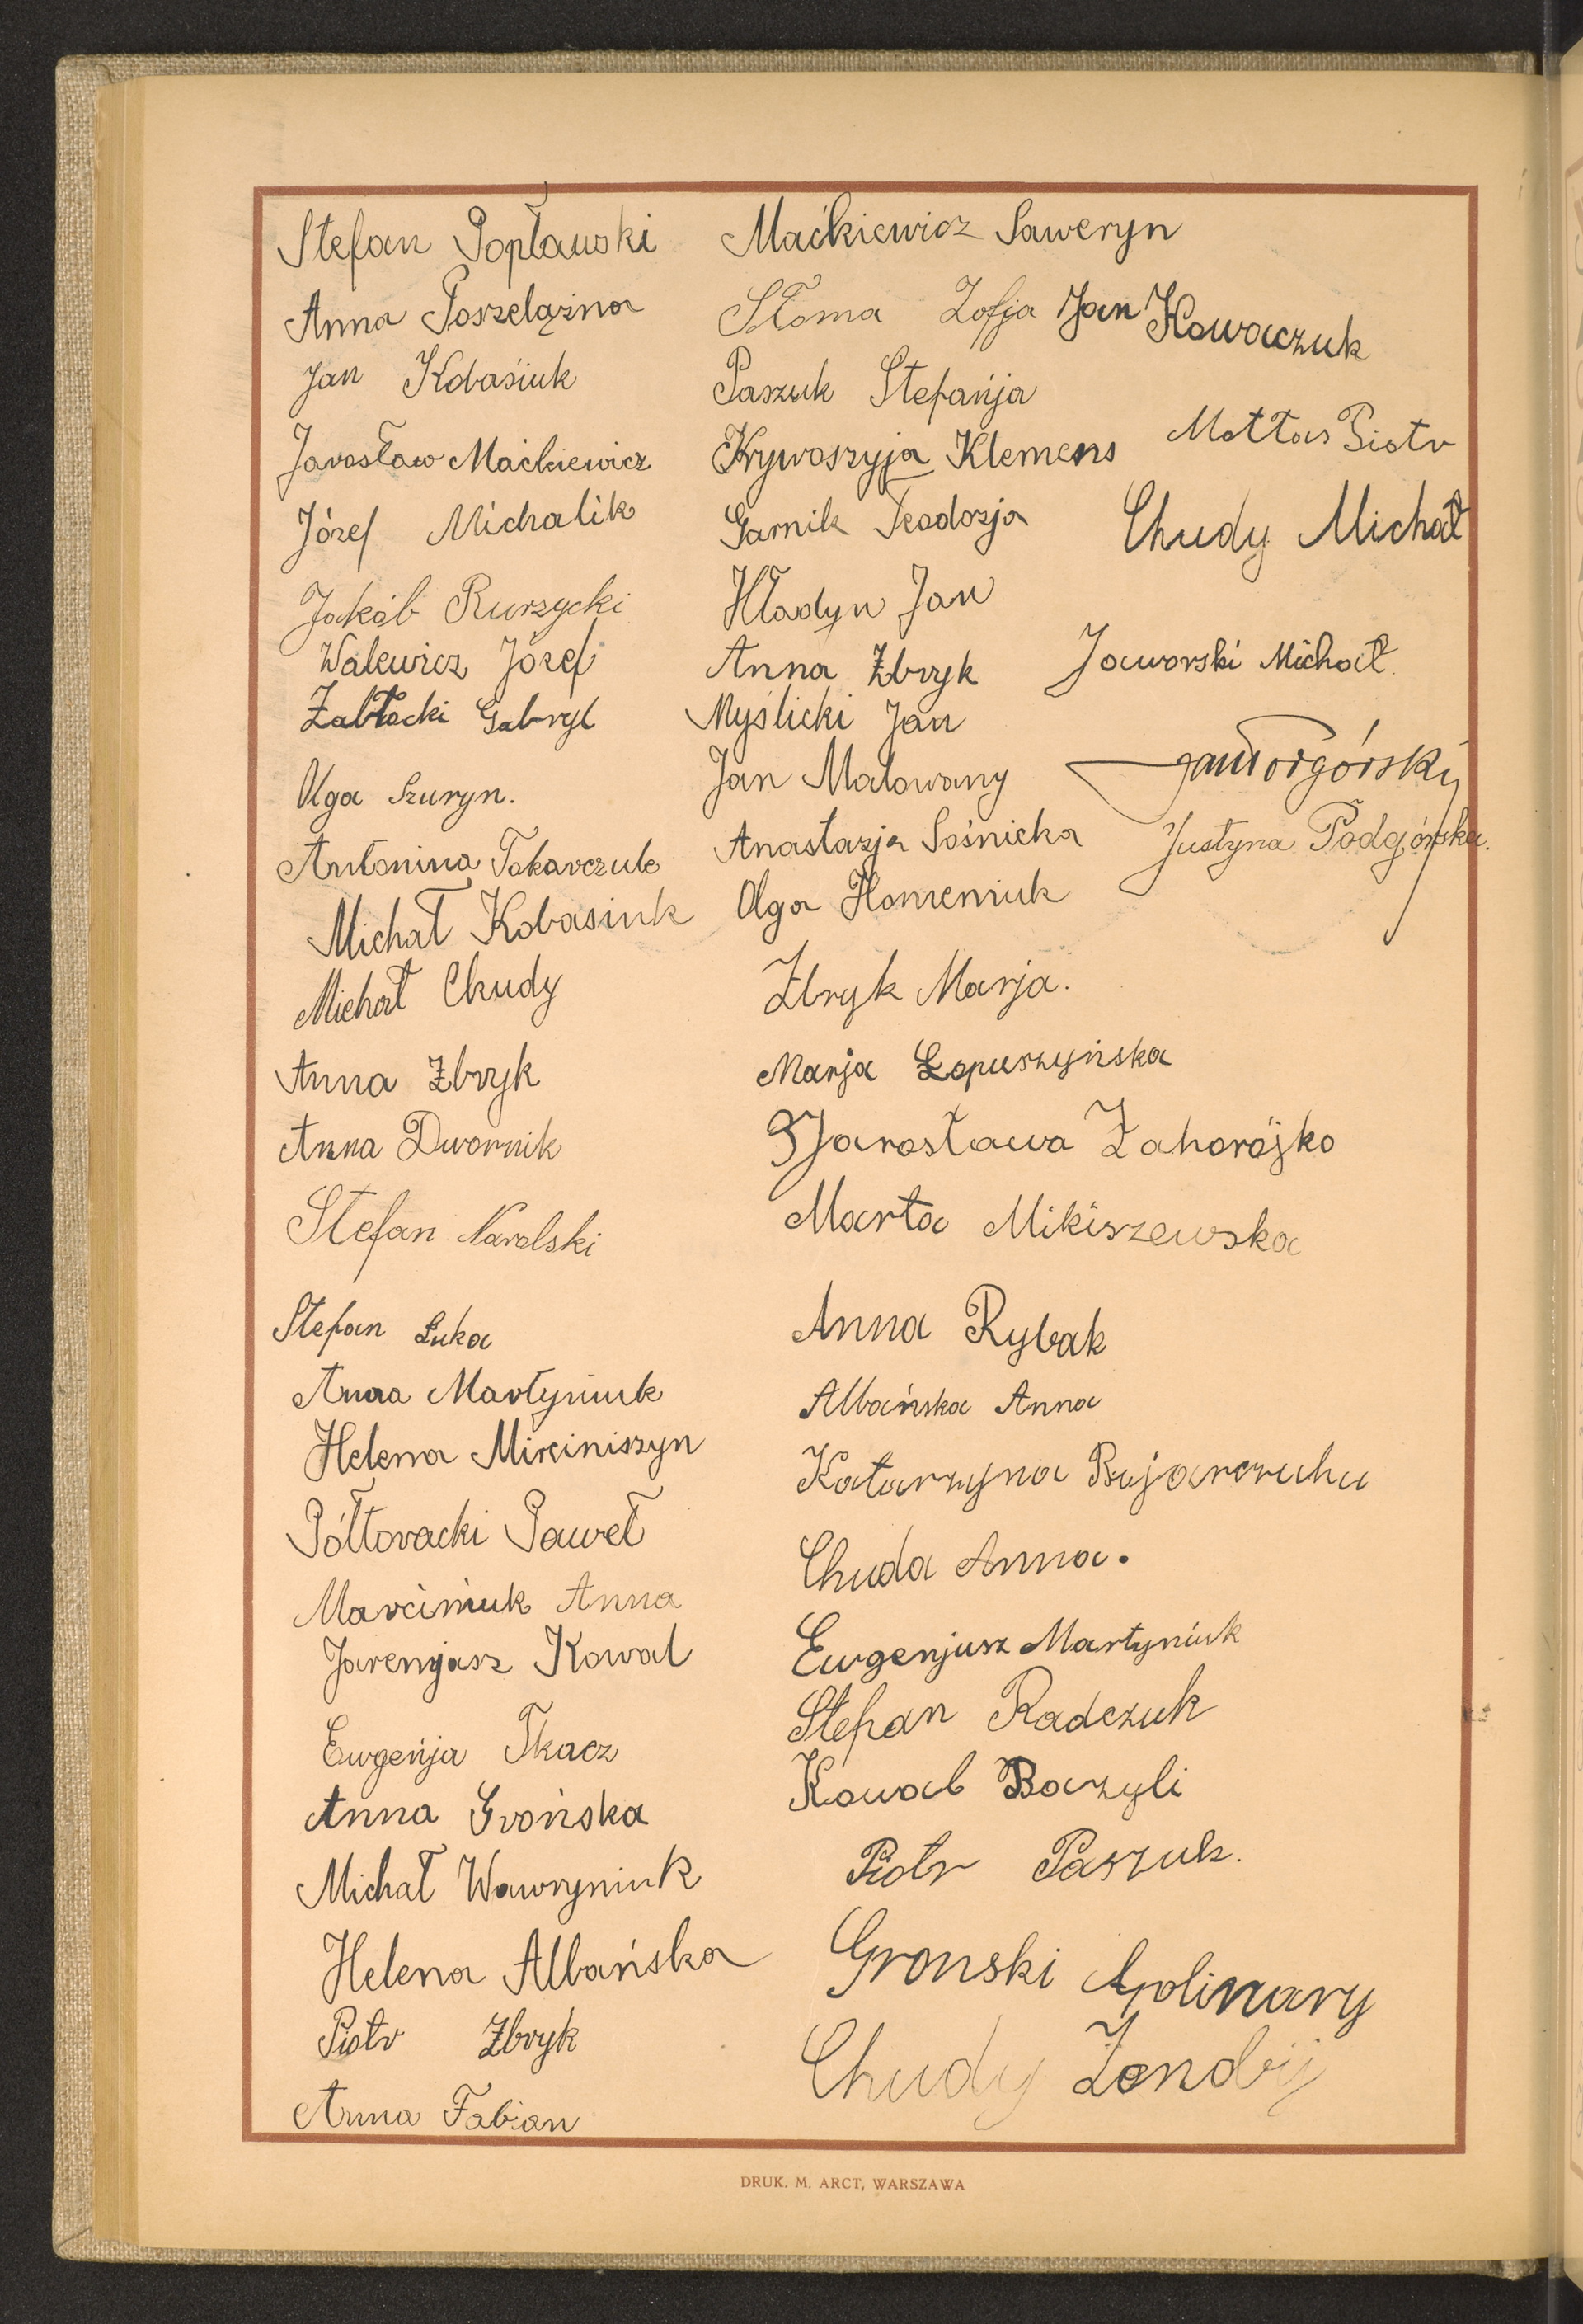 Stefan Popławski
Anna Poszelązna
Jan Kobasiuk
Jarosław Maćkiewicz
Józef Michalik
Jakób Rurzycki
Walewicz Józef
Zabłocki Gabryl
Olga Szuryn.
Antonina Tokarczuk
Michał Kobasiuk
Michał Chudy
Anna Zbryk
Anna Dwornik
Stefan Navalski
Stefan Łuka
Anna Martyniuk
Helena Mirciniszyn
Półtoracki Paweł
Marciniuk Anna
Jaremjasz Kowal
Ewgeńja Tkacz
Anna Grońska
Michał Wawryniuk
Helena Albańska
Piotr Zbryk
Anna Fabian
Maćkiewicz Saweryn
Słoma Zofja
Paszuk Stefańja
Krywoszyja Klemens
Garnik Teodozja
Hładyn Jan
Anna Zbryk
Myślicki Jan
Jan Malowany
Anastazja Sośnicka
Olga Homeniuk
Zbryk Marja.
Marja Łopuszyńska
Jarosława Zahorójko
Marta Mikiszewska
Anna Rybak
Albańska Anna
Katarzyna
Chuda Anna.
Ewgenjusz Martyniuk
Stefan Radczuk
Kowal Bazyli
Piotr Paszuk.
Gronski Apolinary
Chudy
Jan Kowaczuk
Mottas Piotr
Chudy Michał
Jaworski Michał.
Jan Torgórsky
Justyna Podgórska.
DRUK. M. ARCT, WARSZAWA